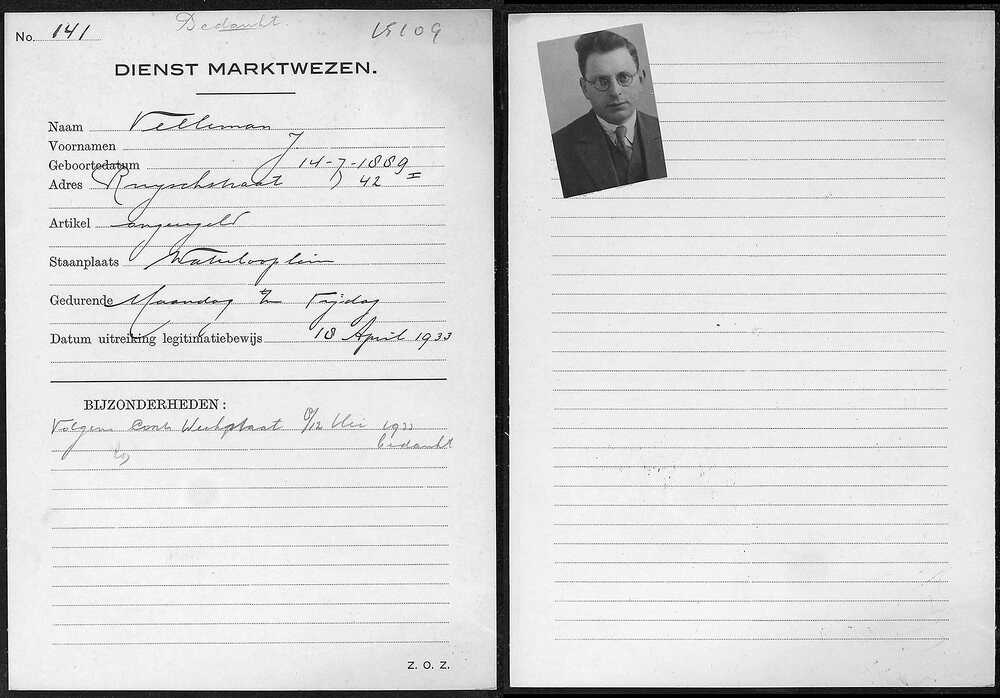 Bedankt.
No. 141
15109
DIENST MARKTWEZEN.
Naam Velleman
Voornamen J
Geboortedatum 14-7-1889
Adres Ruyschstraat 42 I
Artikel ongeregeld
Staanplaats Waterlooplein
Gedurende Maandag t/m Vrijdag
Datum uitreiking legitimatiebewijs 18 April 1933
BIJZONDERHEDEN:
Volgens Contr 8/12 Mei 1933
bedankt
Z. O. Z.